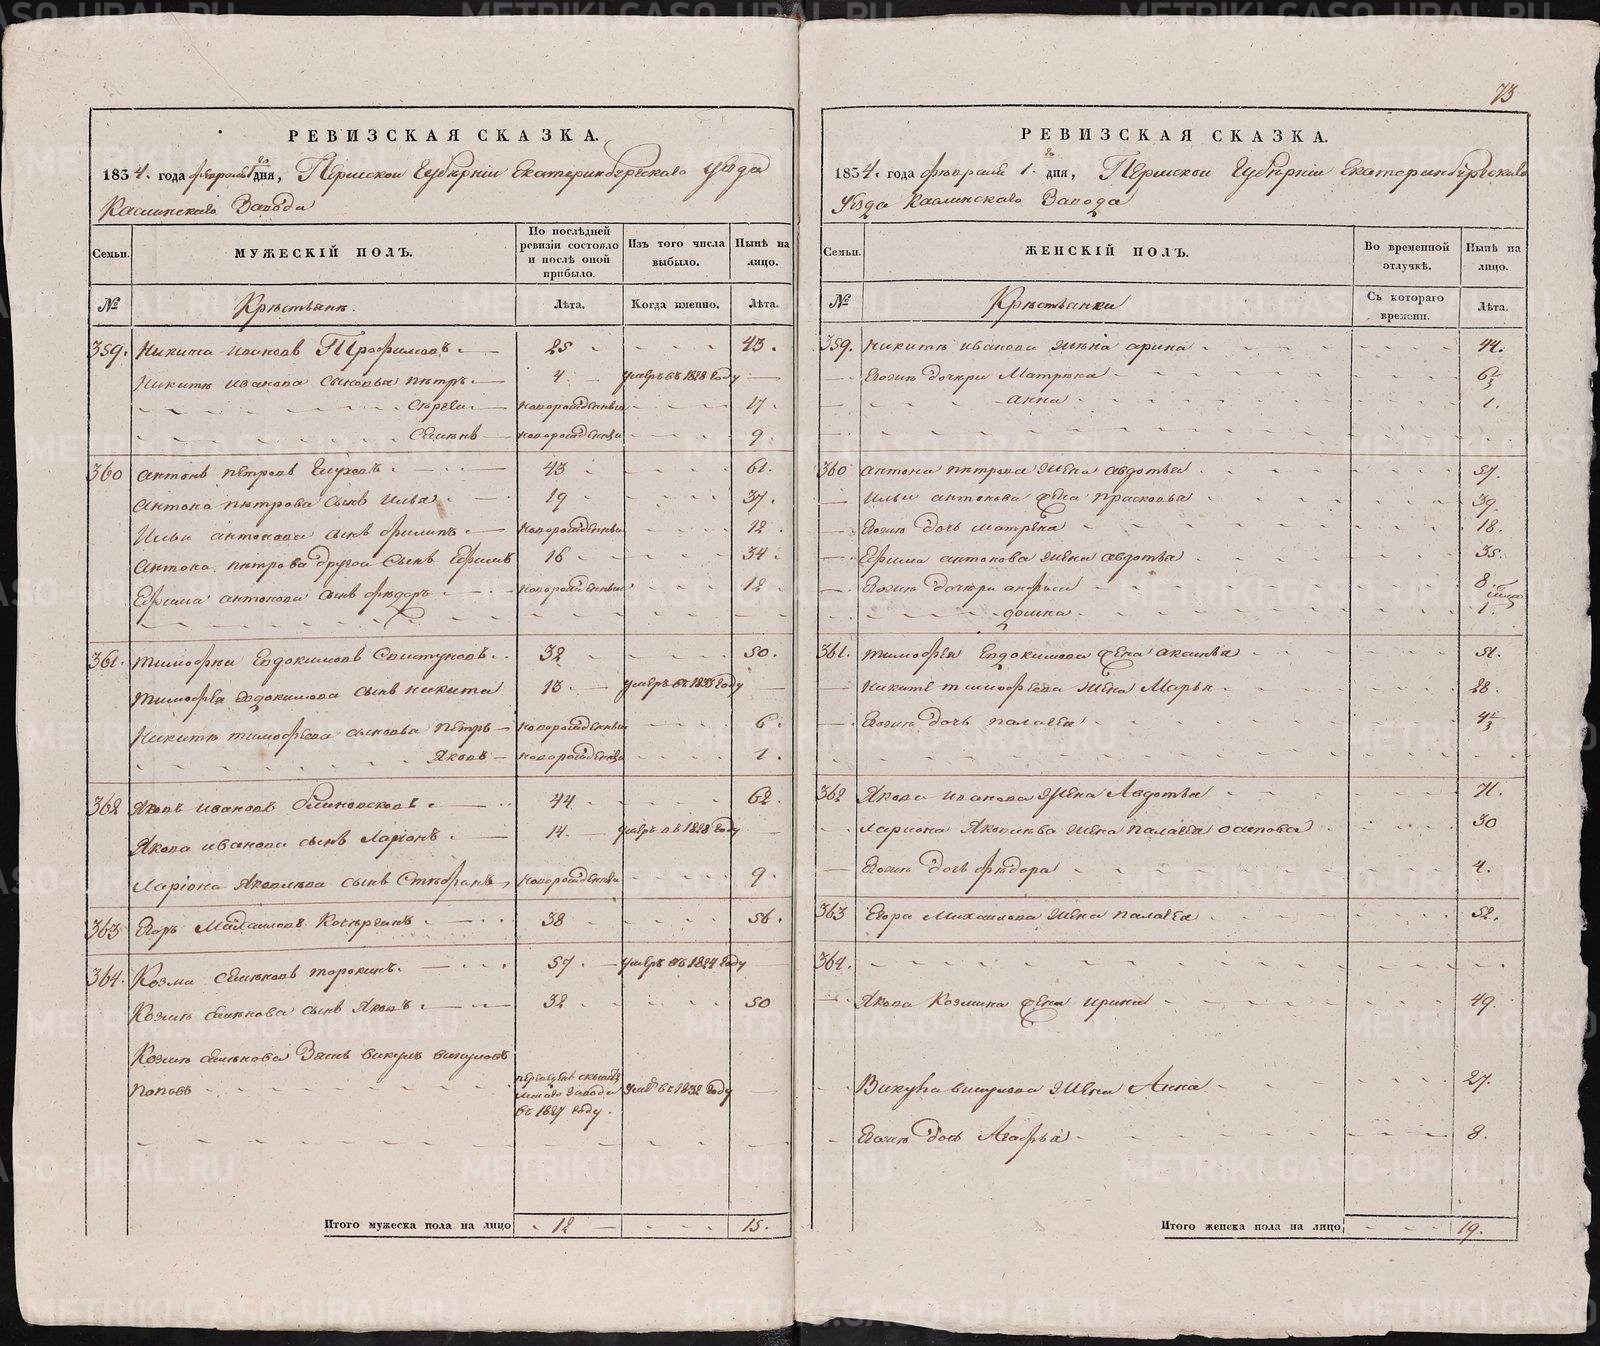 73
РЕВИЗСКАЯ СКАЗКА.
1834. года февраля 1 го дня, Пермской Губерніи Екатеринбургскаго уезда
Каслинскаго Завода
Семьи. МУЖЕСКІЙ ПОЛЪ. По послѣдней ревизіи состояло и послѣ оной прибыло. Изъ того числа выбыло. Нынѣ на лицо.
№ Крестьяне. Лѣта. Когда именно. Лѣта.
359. Никита Ивановъ Трофимовъ 25 43.
Никиты Иванова сыновья Петръ 4 умеръ въ 1828 году
Сергей новорожденный 17.
Семенъ новорожденный 9
360 Антонъ Петровъ Глуховъ 43 61.
Антона Петрова сынъ Илья 19 37.
Ильи Антонова сынъ Филипъ новорожденный 12.
Антона Петрова другой сынъ Ефимъ 16 34.
Ефима Антонова сынъ Федоръ новорожденный 12.
361. Тимофей Евдокимовъ Свистуновъ 32 50.
Тимофея Евдокимова сынъ Никита 13 умеръ въ 1833 году
Никиты Тимофеева сыновья Петръ новорожденный 6.
Яковъ новорожденный 1.
362 Яковъ Ивановъ 44 62.
Якова Иванова сынъ Ларіонъ 14. умеръ въ 1828 году
Ларіона Яковлева сынъ Стефанъ новорожденный 9.
363 Егоръ Михаиловъ 38 56.
364. Козма Семеновъ Торокинъ 57. умеръ въ 1824 году
Козмы Семенова сынъ Яковъ 32 50
Козмы Семенова Зять Викулъ Викуловъ
Поповъ переведенъ завода въ 1827 году. умеръ въ 1832 году
Итого мужеска пола на лицо 12 15.
РЕВИЗСКАЯ СКАЗКА.
1834. года февраля 1. го дня, Пермской Губерніи Екатеринбургскаго
Уезда Каслинскаго Завода
Семьи. ЖЕНСКІЙ ПОЛЪ. Во временной отлучкѣ. Нынѣ на лицо.
№ Крестьянки Съ котораго времени. Лѣта.
359. Никиты Иванова жена Арина 44.
Егоже дочери Матрена 6 1/2
Анна 1.
360 Антона Петрова жена Авдотья 57.
Ильи Антонова жена Прасковья 39
Егоже дочь Матрена 18.
Ефима Антонова жена Авдотья 35.
Егоже дочери 8
Домна 1.
361. Тимофея Евдокимова жена Аксинья 51.
Никиты Тимофеева жена Марья 28.
Егоже дочь Палагея
362 Якова Иванова жена Авдотья 71.
Лариона Яковлева жена Палагея Осипова 30
Егоже дочь Федора 4.
363 Егора Михаилова жена Палагея 52.
364.
Якова Козмина жена Ирина 49.
Викула Викулова жена Анна 27.
Егоже дочь Агафья 8.
Итого женска пола на лицо 19.
METRIKI.GASO-URAL.RU